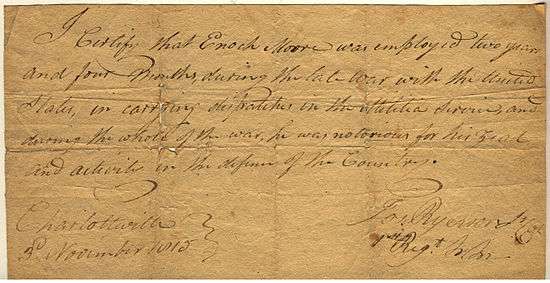 I Certify that Enoch Moore was employed two years
and four Months, during the late War with the United
States, in carrying dispatches in the Militia Service, and
during the whole of the war, he was notorious for his zeal
and activity in the defence of the Country.
Charlotteville
3d. November 1815
Jos. Ryerson Lt Col
1st Regt N.M.